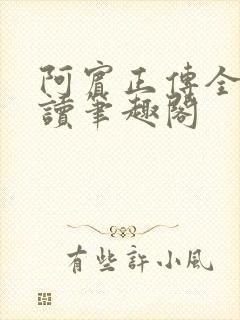 阿賓正傳全
讀筆趣閣
有些許小風